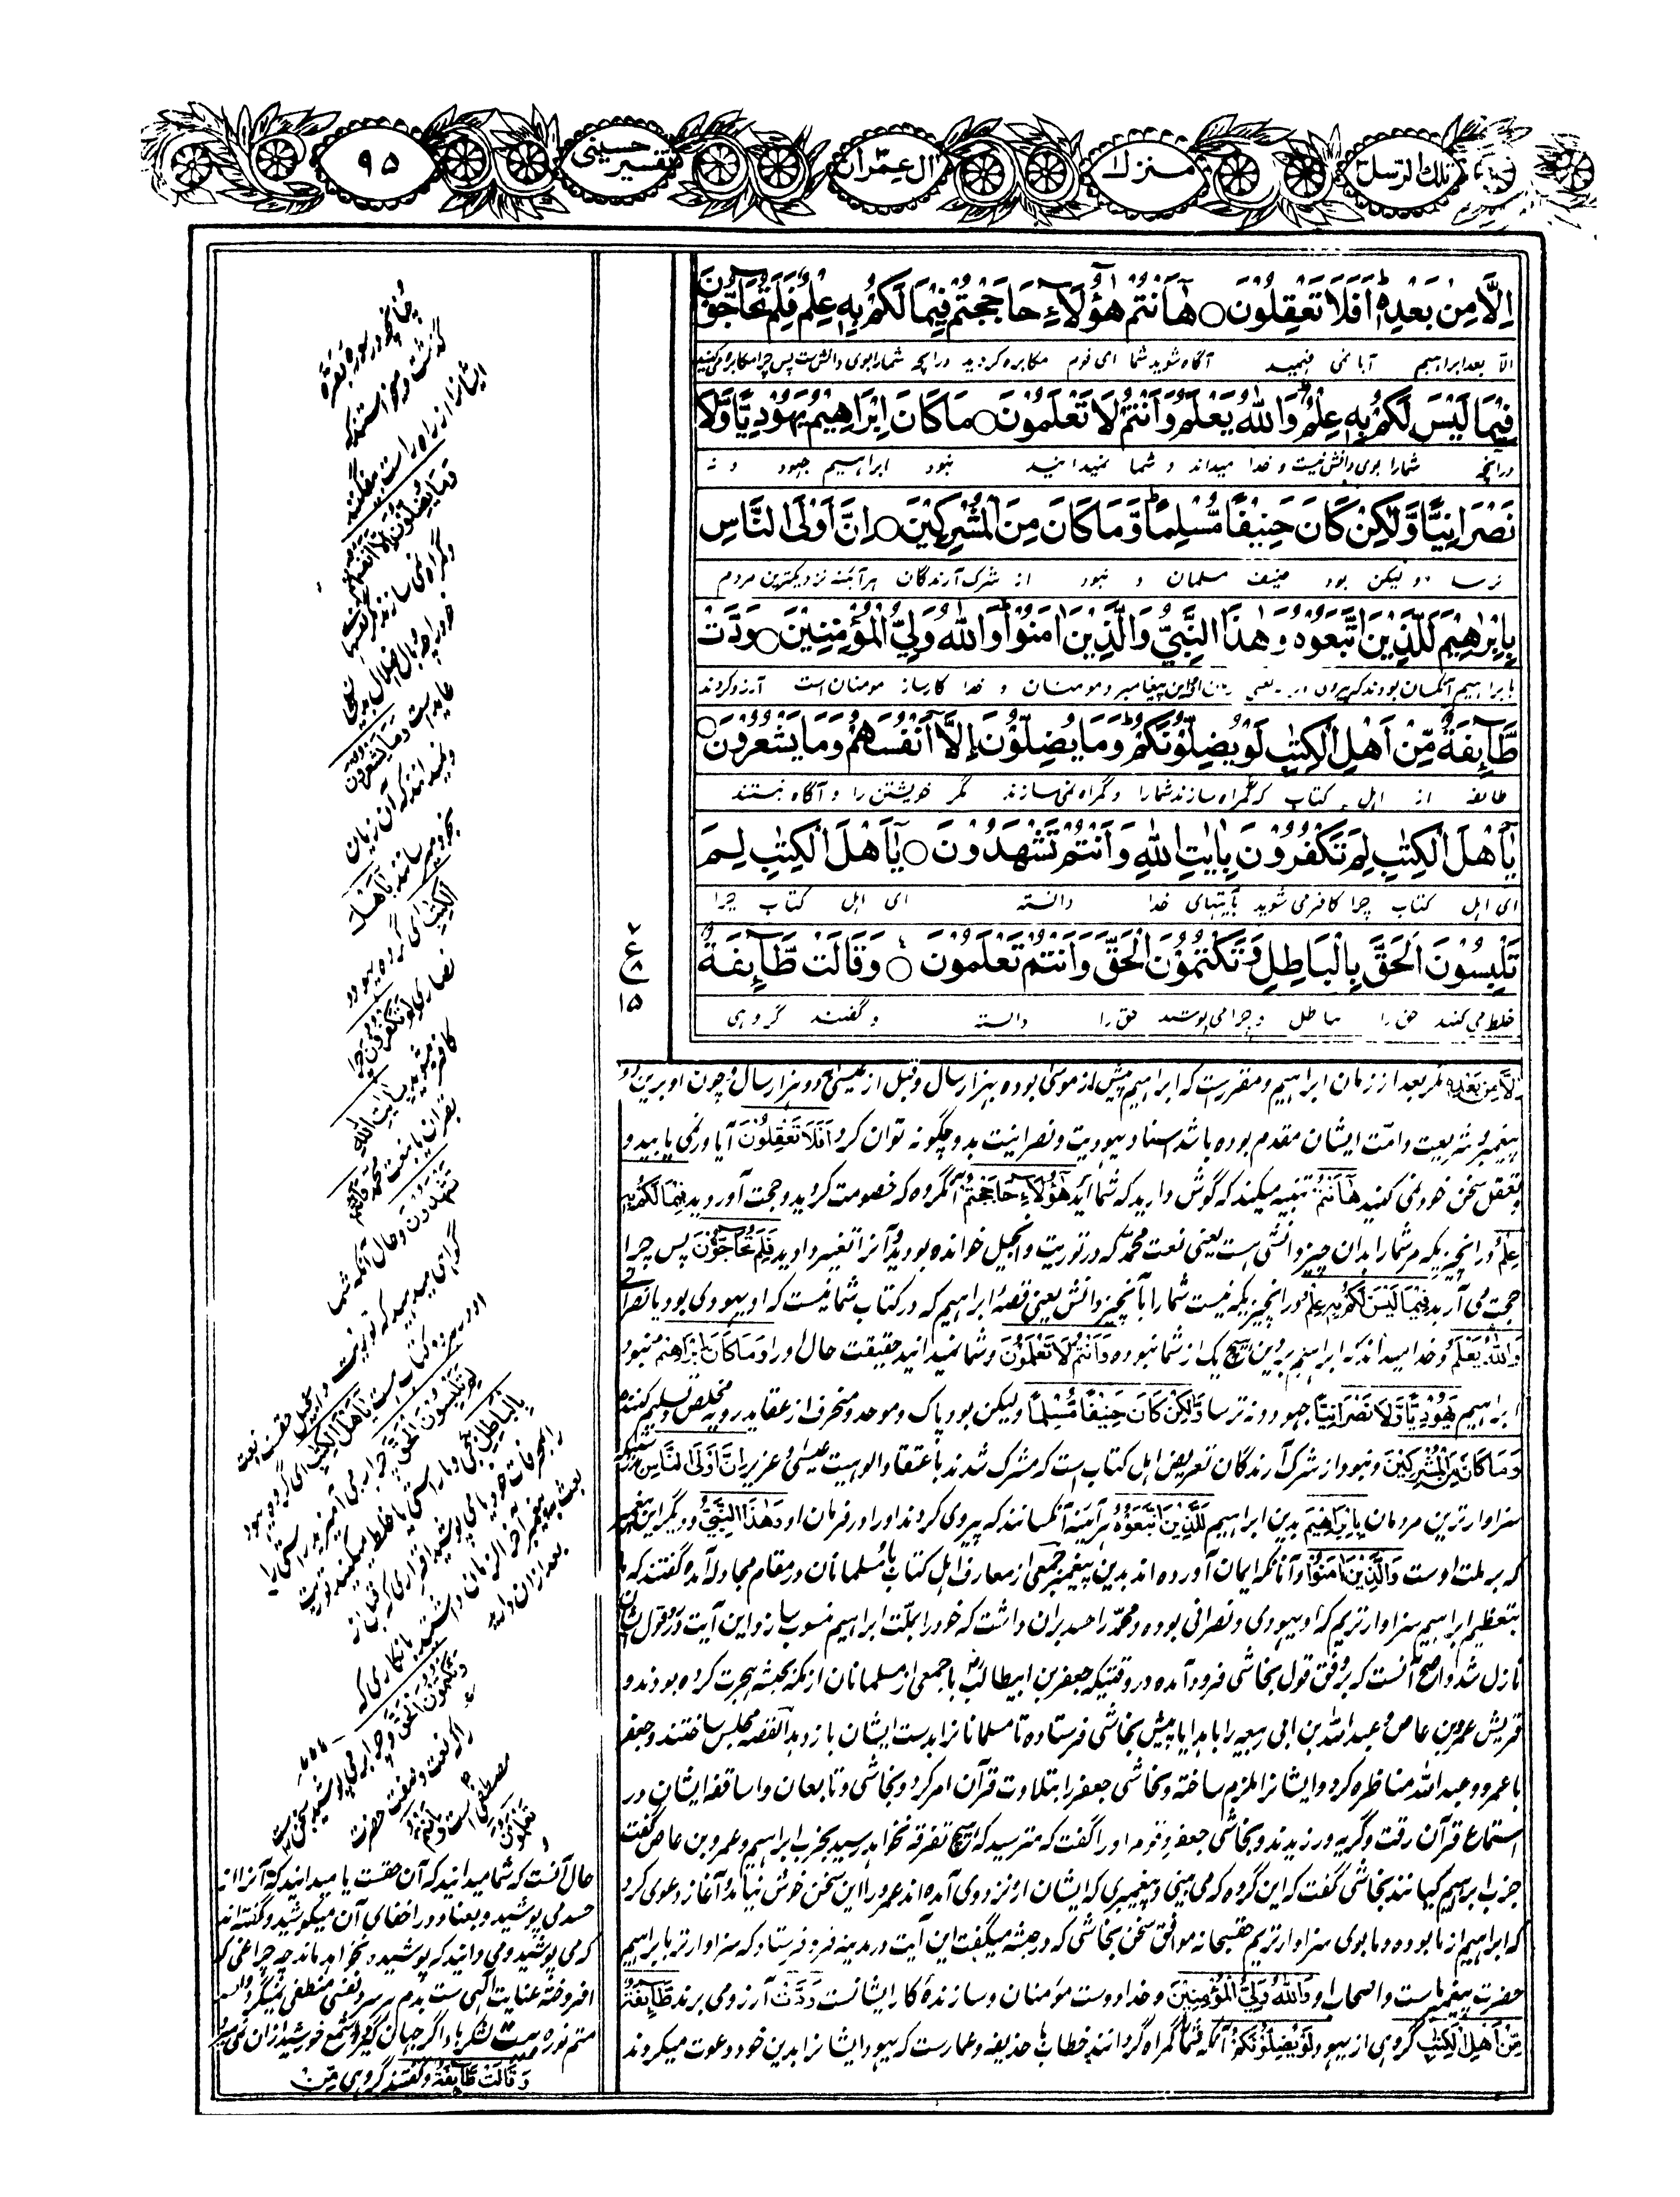 تلك الرسل
منزل
ال عمران
تفسیر حسینی
۹۵
اِلَّا مِنْ بَعْدِهٖ اَفَلَا تَعْقِلُوْنَ ○ هٰٓاَنْتُمْ هٰٓؤُلَآءِ حَاجَجْتُمْ فِيْمَا لَكُمْ بِهٖ عِلْمٌ فَلِمَ تُحَآجُّوْنَ
الا بعد ابراهیم آیا نمی فهمید آگاه شوید شما ای قوم مکابره کردید در آنچه شما را بوی دانش ست پس چرا مکابره می کنید
فِيْمَا لَيْسَ لَكُمْ بِهٖ عِلْمٌ وَاللّٰهُ يَعْلَمُ وَاَنْتُمْ لَا تَعْلَمُوْنَ ○ مَا كَانَ اِبْرَاهِيْمُ يَهُوْدِيًّا وَّلَا
در آنچه شما را بوی دانش نیست و خدا میداند و شما نمیدانید نبود ابراهیم جهود و نه
نَصْرَانِيًّا وَّلٰكِنْ كَانَ حَنِيْفًا مُّسْلِمًا وَّمَا كَانَ مِنَ الْمُشْرِكِيْنَ ○ اِنَّ اَوْلَى النَّاسِ
ترسا و لیکن بود حنیف مسلمان و نبود از شرک آرندگان هر آئینه نزدیکترین مردم
بِاِبْرٰهِيْمَ لَلَّذِيْنَ اتَّبَعُوْهُ وَهٰذَا النَّبِيُّ وَالَّذِيْنَ اٰمَنُوْا وَاللّٰهُ وَلِيُّ الْمُؤْمِنِيْنَ ○ وَدَّتْ
با براهیم آنکسان بودند که پیروی این پیغامبر و مومنان و خدا کارساز مومنان است آرزو کردند
طَّآئِفَةٌ مِّنْ اَهْلِ الْكِتٰبِ لَوْ يُضِلُّوْنَكُمْ وَمَا يُضِلُّوْنَ اِلَّآ اَنْفُسَهُمْ وَمَا يَشْعُرُوْنَ ○
طائفه از اهل کتاب که گمراه سازند شما را و گمراه نمی سازند مگر خویشتن را و آگاه نیستند
يٰٓاَهْلَ الْكِتٰبِ لِمَ تَكْفُرُوْنَ بِاٰيٰتِ اللّٰهِ وَاَنْتُمْ تَشْهَدُوْنَ ○ يٰٓاَهْلَ الْكِتٰبِ لِمَ
ای اهل کتاب چرا کافر می شوید بآیتهای خدا دانسته ای اهل کتاب چرا
تَلْبِسُوْنَ الْحَقَّ بِالْبَاطِلِ وَتَكْتُمُوْنَ الْحَقَّ وَاَنْتُمْ تَعْلَمُوْنَ ○ وَقَالَتْ طَّآئِفَةٌ
خلط می کنید حق را بباطل و چرا می پوشید حق را دانسته و گفتند گروهی
ع
۱۵
اِلَّا مِنْ بَعْدِهٖ مگر بعد از زمان ابراهیم و مقررست که ابراهیم پیش از موسی بوده بهزار سال و قبل از عیسی بدو هزار سال و چون او برین دو
پیغمبر و شریعت و امت ایشان مقدم بوده باشد اسناد یهودیت و نصرانیت بدو چگونه توان کرد اَفَلَا تَعْقِلُوْنَ آیا در نمی یابید و
تعقل سخن خود نمی کنید هٰٓاَنْتُمْ تنبیه میکند که گوش دارید که شما اید هٰٓؤُلَآءِ حَاجَجْتُمْ آنگروه که خصومت کردید و حجت آوردید فِيْمَا لَكُمْ بِهٖ
عِلْمٌ در انچیزیکه مر شما را بدان چیز دانشی ست یعنی نعت محمد که در توریت و انجیل خوانده بودید و آنرا تغییر دادید فَلِمَ تُحَآجُّوْنَ پس چرا
حجت می آرید فِيْمَا لَيْسَ لَكُمْ بِهٖ عِلْمٌ در انچیزیکه نیست شما را بآنچیز دانش یعنی قصه ابراهیم که در کتاب شما نیست که او یهودی بود یا نصرانی
وَاللّٰهُ يَعْلَمُ و خدا میداند که ابراهیم بر دین هیچ یک از شما نبوده وَاَنْتُمْ لَا تَعْلَمُوْنَ و شما نمیدانید حقیقت حال او را مَا كَانَ اِبْرَاهِيْمُ نبود
ابراهیم يَهُوْدِيًّا وَّلَا نَصْرَانِيًّا جهود و نه ترسا وَّلٰكِنْ كَانَ حَنِيْفًا مُّسْلِمًا و لیکن بود پاک و موحد و منحرف از عقاید ردیه مخلص و تسلیم کننده
وَمَا كَانَ مِنَ الْمُشْرِكِيْنَ و نبود از شرک آرندگان تعریض اهل کتاب است که مشرک شدند باعتقاد الوهیت عیسی و عزیر اِنَّ اَوْلَى النَّاسِ
سزاوارترین مردمان بِاِبْرٰهِيْمَ بدین ابراهیم لَلَّذِيْنَ اتَّبَعُوْهُ هر آئینه آنکسانند که پیروی کردند او را در فرمان او وَهٰذَا النَّبِيُّ و دیگر این پیغمبر
که بر ملت اوست وَالَّذِيْنَ اٰمَنُوْا و آنانکه ایمان آورده اند بدین پیغمبر جمعی از معارف اهل کتاب با مسلمانان در مقام مجادله آمده گفتند که ما
بتعظیم ابراهیم سزاوارتریم که او یهودی و نصرانی بوده و محمد را حسد بران داشت که خود را بملت ابراهیم منسوب سازد این آیت در رد قول ایشان
نازل شد و اصح آنست که بر وفق قول نجاشی فرود آمده در وقتیکه جعفر بن ابیطالب با جمعی از مسلمانان از مکه بحبشه هجرت کرده بودند و
قریش عمرو بن عاص و عبدالله بن ابی ربیعه را با هدایا پیش نجاشی فرستاده تا مسلمانان را بدست ایشان باز دهد القصه مجلس ساختند و جعفر
با عمرو و عبدالله مناظره کرد و ایشانرا ملزم ساخته و نجاشی جعفر را بتلاوت قرآن امر کرد و نجاشی و تابعان و اساقفه ایشان در
استماع قرآن رقت و گریه ورزیدند و نجاشی جعفر و قوم او را گفت که مترسید که هیچ تفرقه نخواهد رسید بحزب ابراهیم و عمرو بن عاص گفت
حزب ابراهیم کیانند نجاشی گفت که این گروه که می بینی و پیغمبری که ایشان از نزد وی آمده اند عمرو را این سخن خوش نیامد و آغاز دعوی کرد
که ابراهیم از ما بوده و ما بوی سزاوارتریم حقسبحانه موافق سخن نجاشی که در حبشه میگفت این آیت در مدینه فرو فرستاد که سزاوارتر با براهیم
حضرت پیغمبر ماست و اصحاب او وَاللّٰهُ وَلِيُّ الْمُؤْمِنِيْنَ و خدا دوست مومنان و سازنده کار ایشانست وَدَّتْ آرزو می برند طَّآئِفَةٌ
مِّنْ اَهْلِ الْكِتٰبِ گروهی از یهود لَوْ يُضِلُّوْنَكُمْ آنکه شما را گمراه گردانند خطاب با حذیفه و عمارست که یهود ایشانرا بدین خود دعوت میکردند
چنانچه در سوره بقره
گذشت و میخواستند که
ایشانرا از راه راست بیفگنند
وَمَا يُضِلُّوْنَ اِلَّآ اَنْفُسَهُمْ
و گمراه نمی سازند مگر نفسهای
خود را چه وبال اضلال بدیشان
عاید است وَمَا يَشْعُرُوْنَ
و نمیدانند که آن زیان
بخود میرسانند يٰٓاَهْلَ
الْكِتٰبِ ای گروه یهود و
نصاری لِمَ تَكْفُرُوْنَ چرا
کافر میشوید بِاٰيٰتِ اللّٰهِ
بقرآن یا بنعت محمد وَاَنْتُمْ
تَشْهَدُوْنَ و حال آنکه شما
گواهی میدهید که توریت و انجیل حقست نعت
او در هر دو کتاب ست يٰٓاَهْلَ الْكِتٰبِ ای گروه یهود
لِمَ تَلْبِسُوْنَ الْحَقَّ چرا بر می آمیزید راستی را
بِالْبَاطِلِ بکجی و ناراستی یا خلط میکنید توریت
را بمحرفات خود یا می پوشید اقراری که قبل از
بعثت پیغمبر آخر الزمان داشتید بانکاری که
بعد ازان دارید
وَتَكْتُمُوْنَ الْحَقَّ و چرا می پوشید سخن راست
را که نعت و صفت حضرت
مصطفی است وَاَنْتُمْ
تَعْلَمُوْنَ و
حال آنست که شما میدانید که آن حقست یا میدانید که آنرا از
حسد می پوشید و بعناد در اخفای آن میکوشید و گفته اند
که می پوشید و می دانید که پوشیده نخواهد ماند چه چراغی که
افروخته عنایت الهی ست بدم هر سرد نفسی منطفی نمیگردد والله
متم نوره بیت
وَقَالَتْ طَّآئِفَةٌ و گفتند گروهی مِّنْ